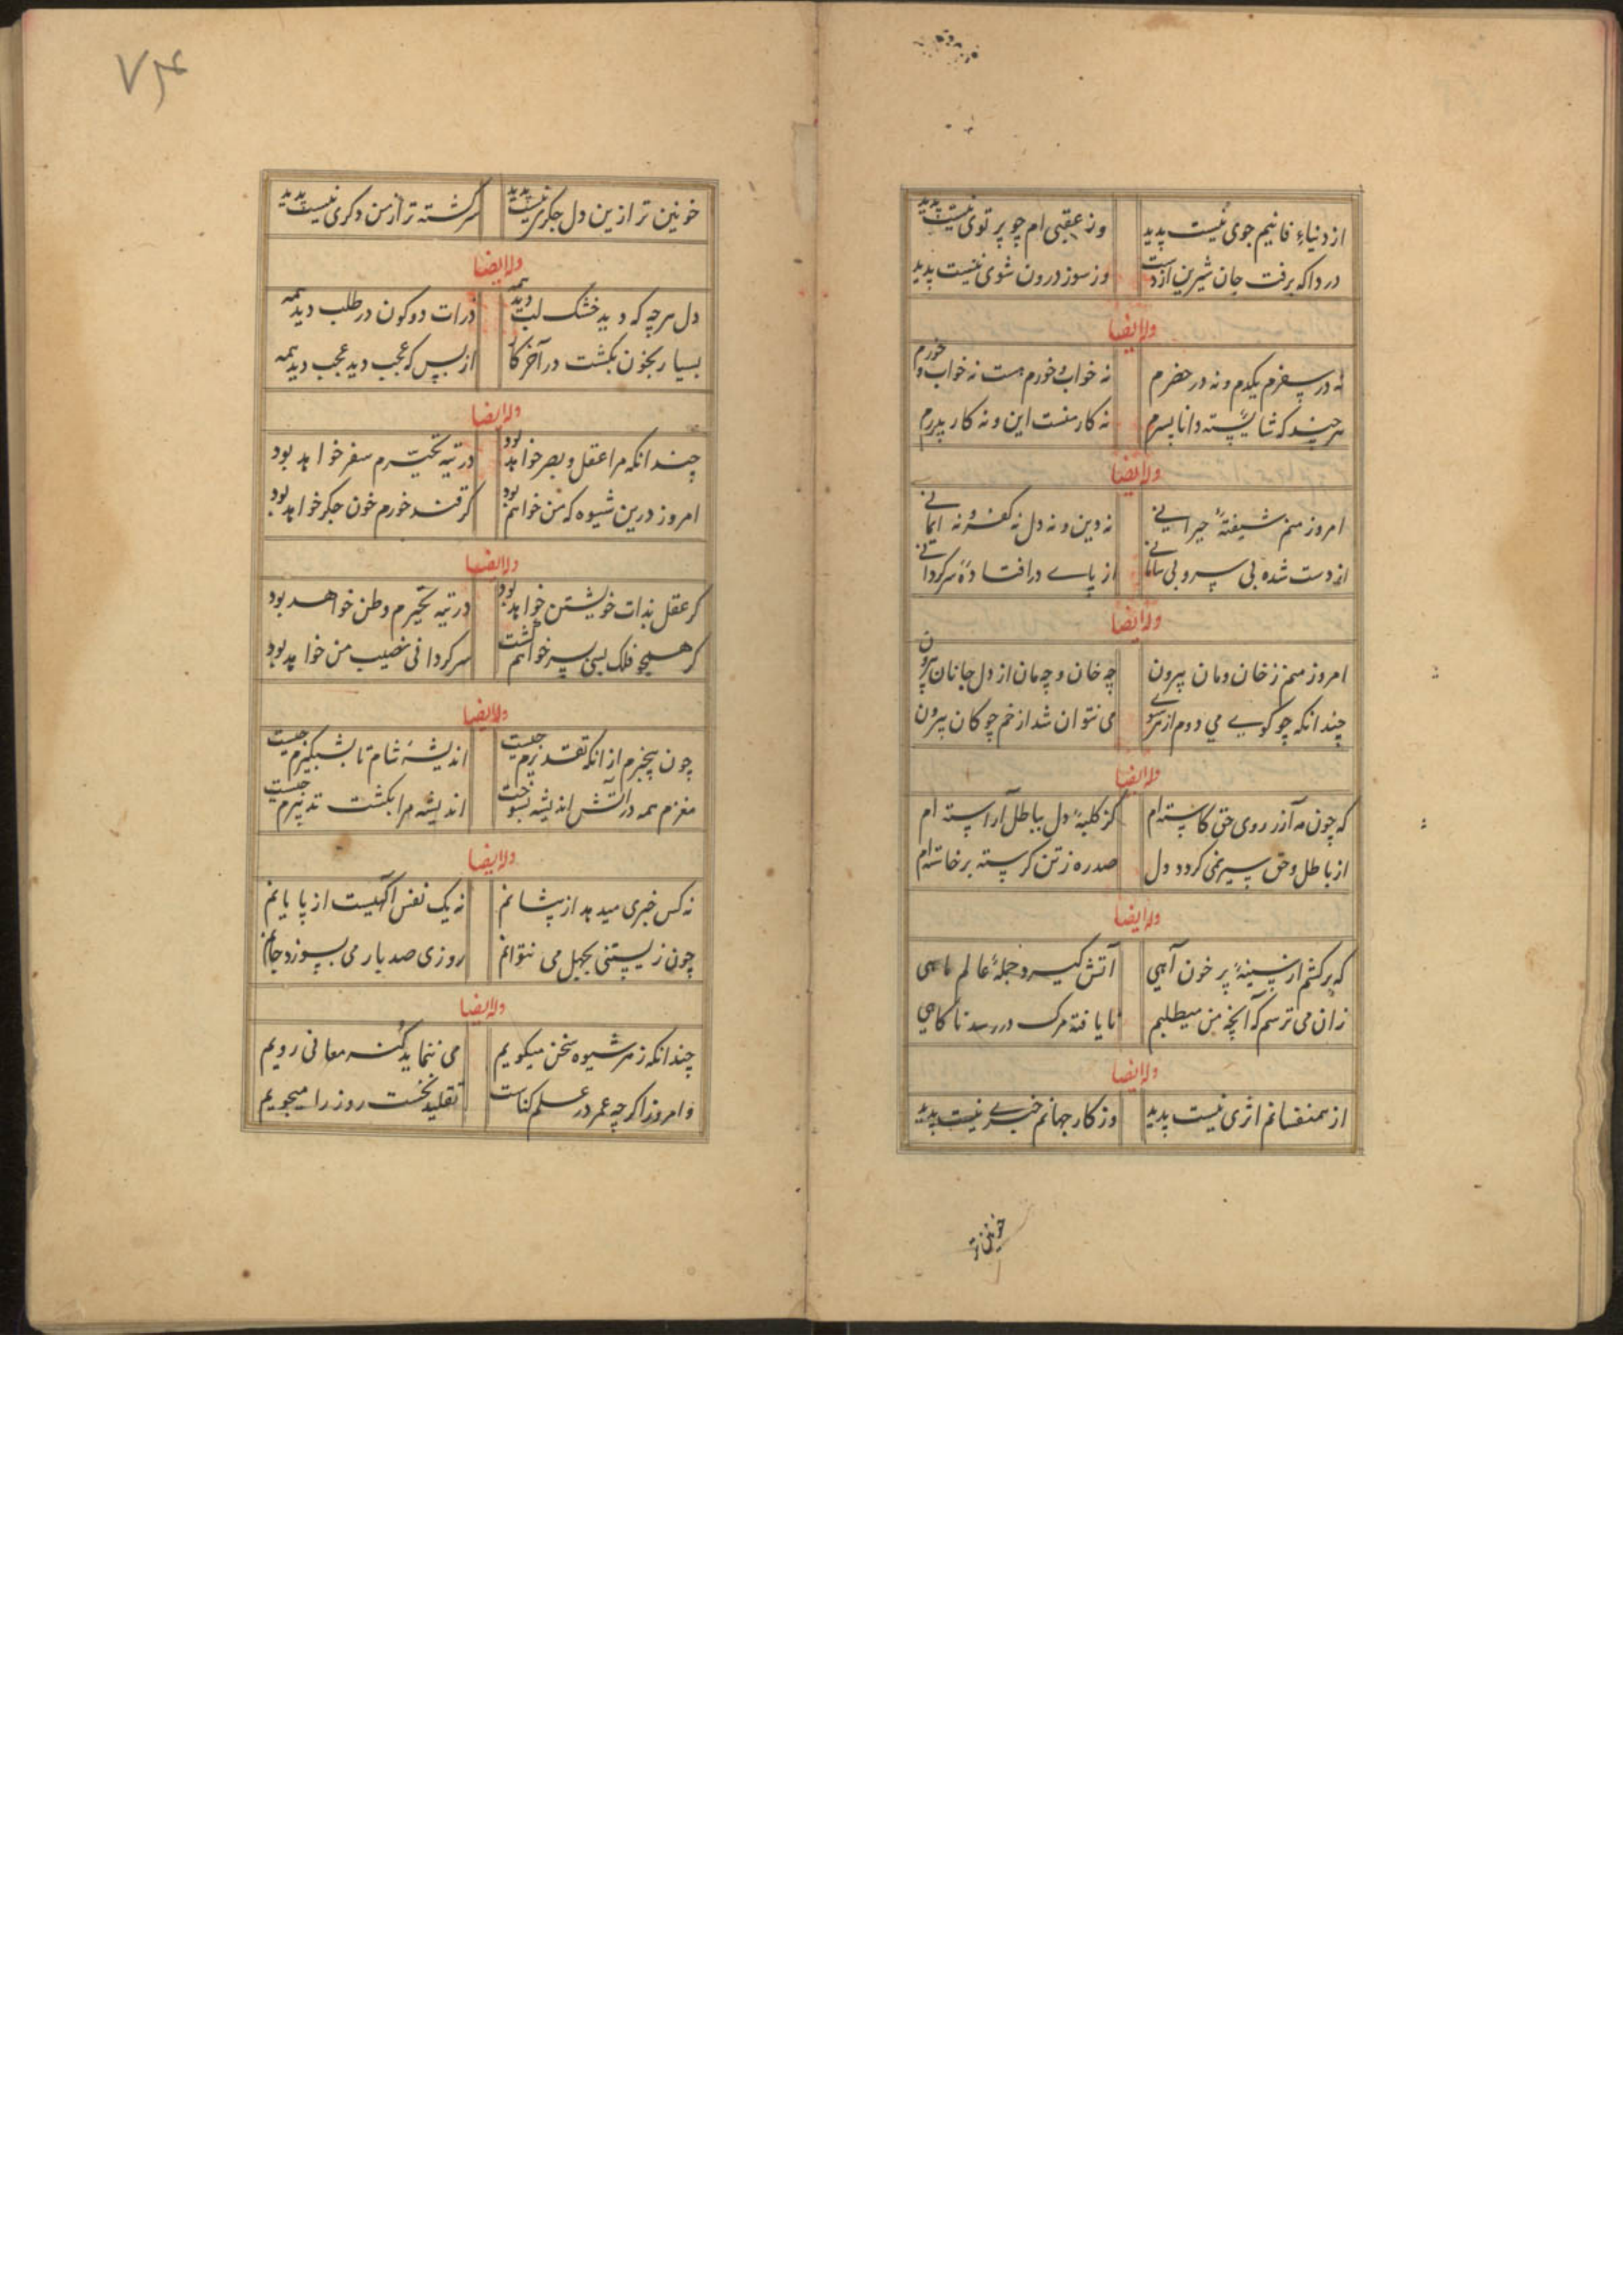 از دنیاء فانیم جوی نیست پدید وز عقبی ام چو پرتوی نیست پدید
دردا که برفت جان شیرین از دست وز سوز درون شوی نیست پدید
وله ایضا
نه در سفرم یکدم و نه در حضرم نه خواب و خورم هست نه خواب و خورم
هر چند که شایسته و دانا پسرم نه کار منست این و نه کار پدرم
وله ایضا
امروز منم شیفتهٔ حیرانی نه دین و نه دل نه کفر و نه ایمانی
از دست شده بی سر و بی سامانی از پای درافتادهٔ سرکردانی
وله ایضا
امروز منم ز خان و مان بیرون چه خان و چه مان از دل جانان بیرون
چندانکه چو کوی می دوم از هر سوی می نتوان شد از خم چوکان بیرون
وله ایضا
که چون مه از روی حق کاسته ام کز کلبهٔ دل بباطل آراسته ام
از باطل و حق سیر نمی کردد دل صد ره ز تن کرسته برخاسته ام
وله ایضا
که برکشم از سینهٔ پر خون آهی آتش کیرد جملهٔ عالم ماهی
زان می ترسم که آنچه من میطلبم نایافته مرک در رسد ناکاهی
وله ایضا
از همنفسانم اثری نیست پدید وز کار جهانم خبری نیست پدید
خونین تر
۷۴
خونین تر ازین دل جکری نیست پدید سرکشته تر از من دکری نیست پدید
وله ایضا
دل هرچه که دید خشک لب دید همه ذرات دو کون در طلب دید همه
بسیار بخون بکشت در آخر کار از بس که عجب دید عجب دید همه
وله ایضا
چندانکه مرا عقل و بصر خواهد بود در تیه تحیّرم سفر خواهد بود
امروز درین شیوه که من خواهم بود کر قند خورم خون جکر خواهد بود
وله ایضا
کر عقل بذات خویشتن خواهد بود در تیه تحیرم وطن خواهد بود
کر همچو فلک بسی بسر خواهم کشت سرکردانی نصیب من خواهد بود
وله ایضا
چون بیخبرم از انکه تقدیرم چیست اندیشهٔ شام تا بشبکیرم چیست
مغزم همه در آتش اندیشه بسوخت اندیشه مرا بکشت تدبیرم چیست
وله ایضا
نه کس خبری میدهد از پیشانم نه یک نفس آکهیست از پایانم
چون زیستنی بجهل می نتوانم روزی صد بار می بسوزد جانم
وله ایضا
چندانکه ز هر شیوه سخن میکویم می ننماید کنه معانی رویم
و امروز اکر چه عمر در علم تقلید نخست روز را میجویم